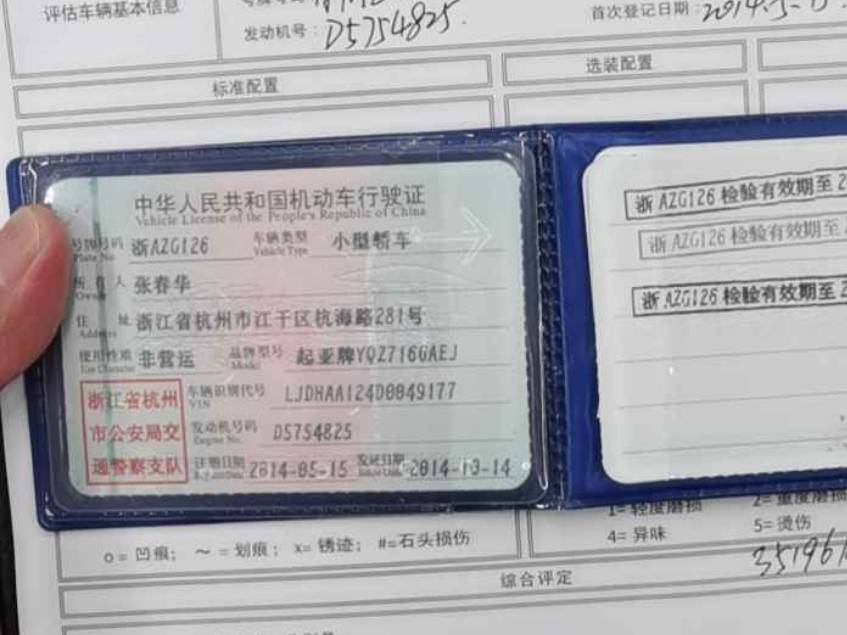 评估车辆基本信息
发动机号：D5754825.
首次登记日期：2014.5-15.
标准配置
选装配置
中华人民共和国机动车行驶证
Vehicle License of the People's Republic of China
号牌号码 浙AZG126 车辆类型 小型轿车
Plate No. Vehicle Type
所有人 张春华
Owner
住 址 浙江省杭州市江干区杭海路281号
Address
使用性质 非营运 品牌型号 起亚牌YQZ7160AEJ
Use Character Model
浙江省杭州
市公安局交
通警察支队
车辆识别代号 LJDHAA124D0049177
VIN
发动机号码 D5754825
Engine No.
注册日期 2014-05-15 发证日期 2014-10-14
浙AZG126 检验有效期至2
浙AZG126 检验有效期至2
浙AZG126 检验有效期至2
1=轻度磨损 2=重度磨损
4=异味 5=烫伤
o=凹痕； ～=划痕； x=锈迹； #=石头损伤
综合评定
35196